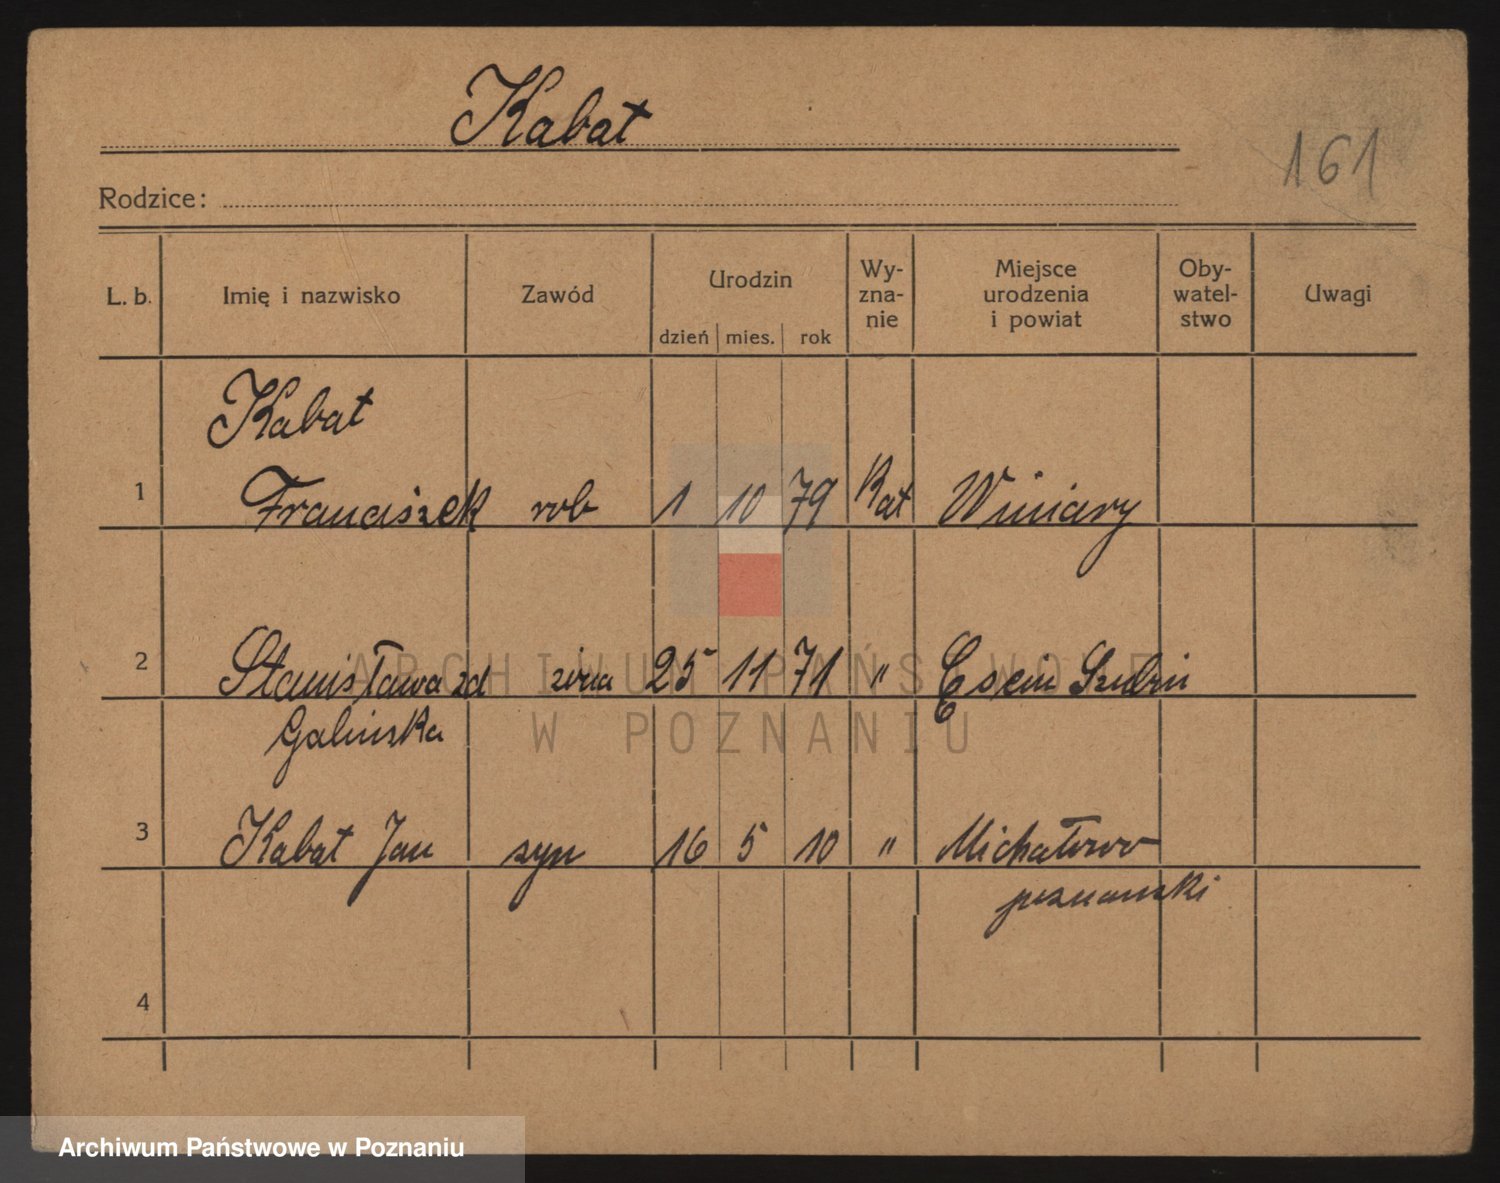 Kabat
161
Rodzice:
L. b. Imię i nazwisko Zawód Urodzin dzień mies. rok Wy-zna-nie Miejsce urodzenia i powiat Oby-watel-stwo Uwagi
Kabat
1 Franciszek rob 1 10 79 Kat Winiary
2 Stanisława zd żona 25 11 71 "
Galińska
3 Kabat Jan syn 16 5 10 " Michałowo
poznański
4
ARCHIWUM PAŃSTWOWE
W POZNANIU
Archiwum Państwowe w Poznaniu